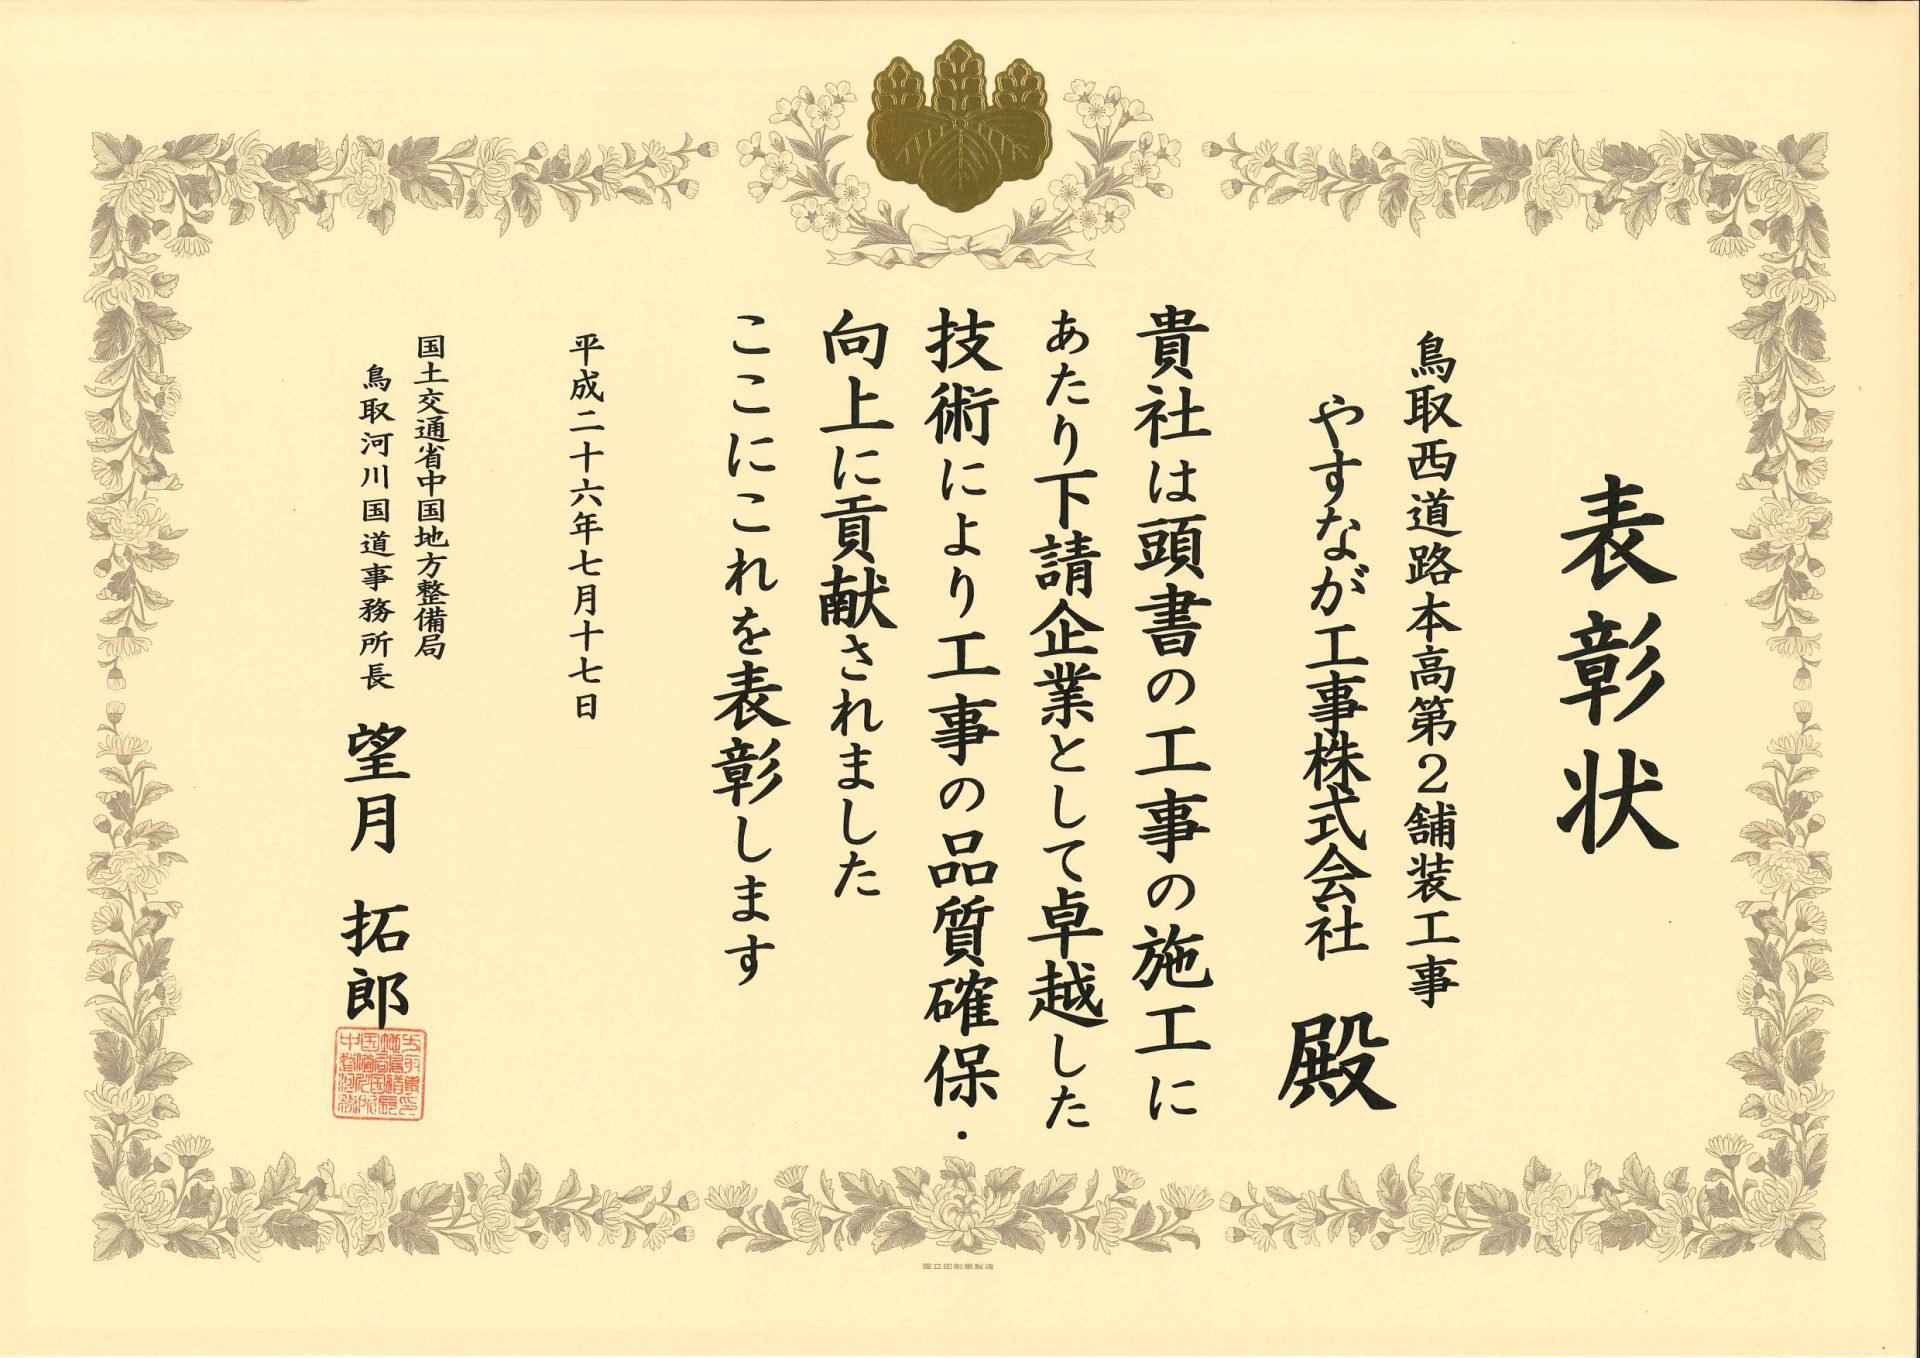 表彰状
鳥取西道路本高第２舗装工事
やすなが工事株式会社 殿
貴社は頭書の工事の施工に
あたり下請企業として卓越した
技術により工事の品質確保・
向上に貢献されました
ここにこれを表彰します
平成二十六年七月十七日
国土交通省中国地方整備局
鳥取河川国道事務所長 望月 拓郎
国立印刷局製造